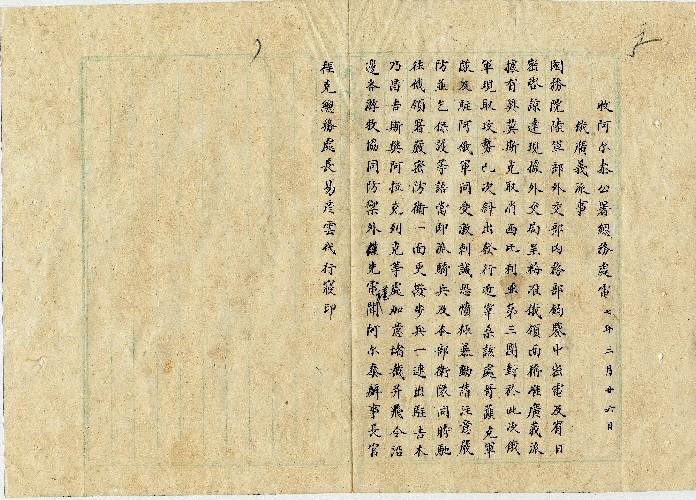 收阿尔泰公署總務處電 七年三月廿六日
俄廣義派事
國務院陸軍部外交部內務部鈞鑒中密電及宥日
密啓諒達現據外交局呈稱准俄領面稱椎廣義流
據有與莫斯克取消西比利亞第三團對於此次俄
軍現取攻勢已次斜出發行近宰桑該處哥薩克軍
敗及駐阿俄軍同受激刺誠恐憤極暴動請注意嚴
防並乞保護等語當即派騎兵及本部衛隊同時馳
往俄領署嚴密防衛一面更撥步兵一連出駐吉木
乃昌吉斯與阿拉克列克等處加意堵截并飛令沿
邊各游牧協同防禦外謹先電聞阿尔泰辦事長官
程克總務處長易彥雲代行寢印